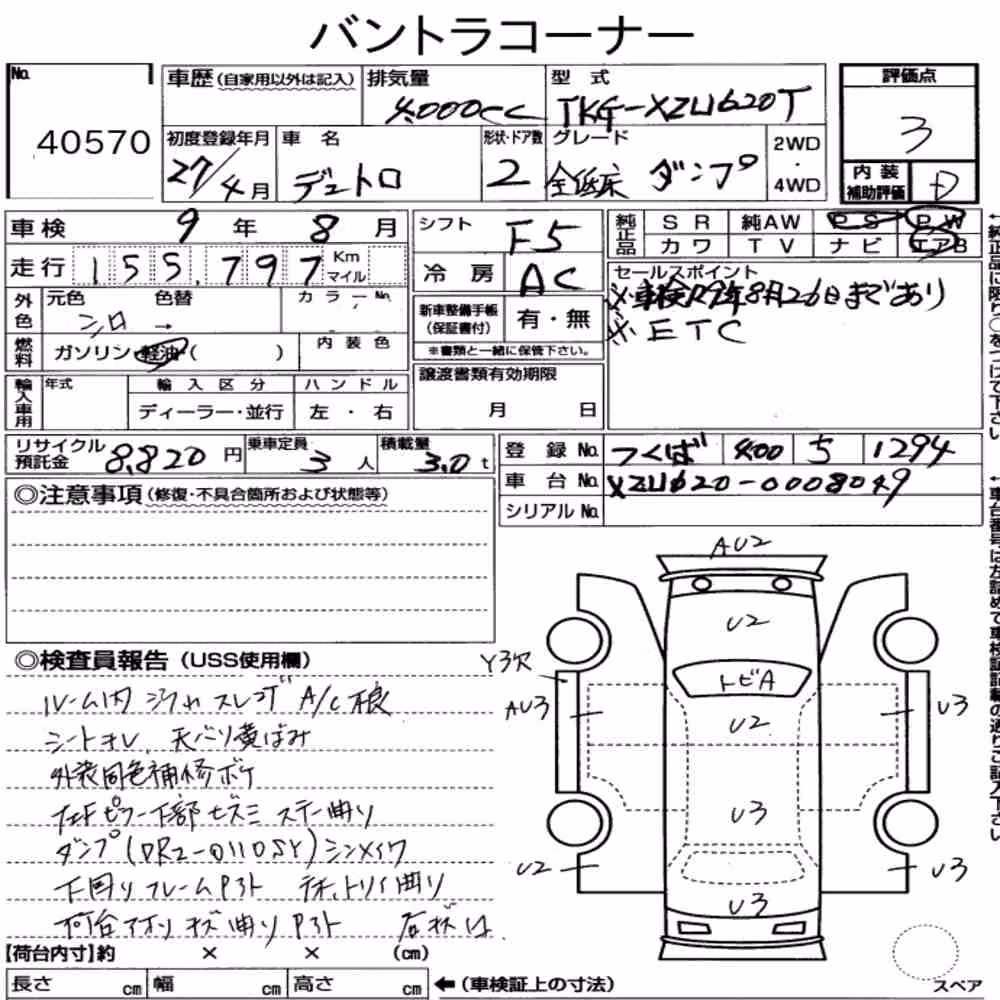 バントラコーナー
No.
40570
車歴 (自家用以外は記入)
排気量
4.000cc
型式
TKG-XZU620T
評価点
3
初度登録年月
27/4月
車名
デュトロ
形状・ドア数
2
グレード
全低床 ダンプ
2WD
・
4WD
内装
補助評価
D
車検 9年 8月
走行 155,797 Km マイル
外色
元色 色替 カラーNo.
シロ →
燃料
ガソリン・軽油( )
内装色
輸入車用
年式
輸入区分
ディーラー・並行
ハンドル
左・右
シフト
F5
冷房
AC
新車整備手帳
(保証書付)
有・無
※書類と一緒に保管下さい。
譲渡書類有効期限
月 日
純正品
SR 純AW PS PW
カワ TV ナビ エアB
セールスポイント
※車検R9年8月26日まであり
※ETC
リサイクル
預託金
8,820円
乗車定員
3人
積載量
3.0t
登録No.
つくば 400 5 1294
車台No.
XZU620-0008049
シリアルNo.
◎注意事項 (修復・不具合箇所および状態等)
◎検査員報告 (USS使用欄)
ルーム内 A/C
シートヨレ、天バリ黄ばみ
外装同色補修ボケ
左Fピラー下部 ステー曲り
ダンプ(DR2-0110SY)シンメイワ
下回りフレームPサト 曲り
荷台アオリ 曲り Pサト
【荷台内寸】約 × × (cm)
長さ cm 幅 cm 高さ cm
←(車検証上の寸法)
AU2
U2
Y3欠
トビA
AU3
U2
U3
U3
U2
U3
U3
スペア
←純正品に限り○をつけて下さい
←車台番号は左詰めで車検証記載の通りご記入下さい